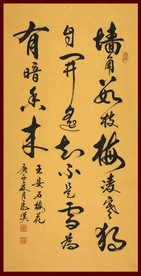 墙角数枝梅凌寒独
自开遥知不是雪为
有暗香来
王安石梅花
庚子